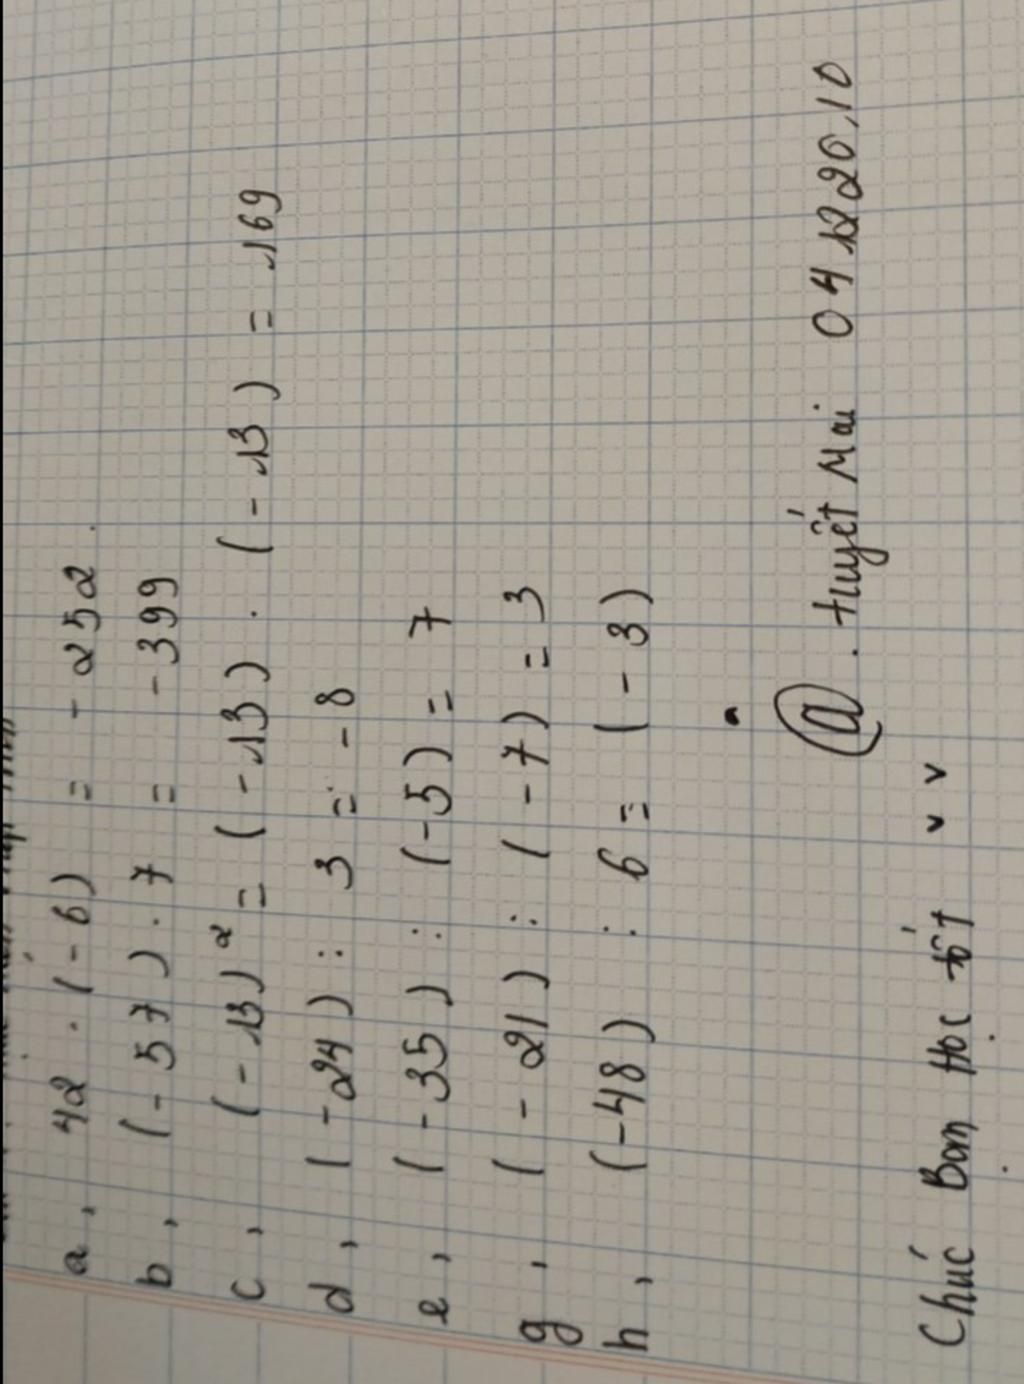 a, 42 . (-6) = -252.
b, (-57) . 7 = -399
c, (-13)² = (-13) . (-13) = 169
d, (-24) : 3 = -8
e, (-35) : (-5) = 7
g, (-21) : (-7) = 3
h, (-48) : 6 = (-3)
@ . tuyết Mai 04 12 20.10
Chúc Bạn Học tốt v v